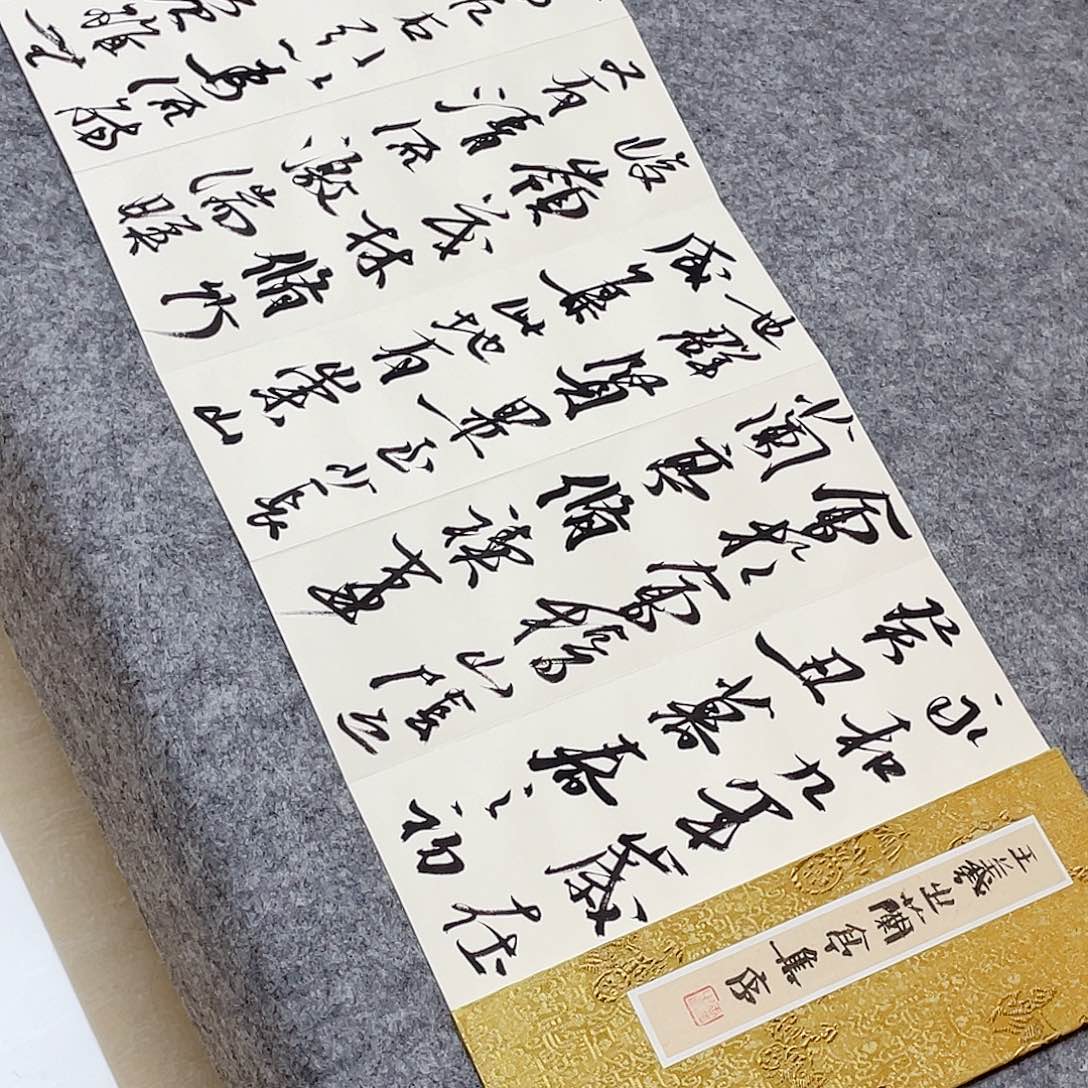 王羲之蘭亭集序
永和九年歲在
癸丑暮春之初
會於會稽山陰之
蘭亭脩禊事
也群賢畢至少長
咸集此地有崇山
峻嶺茂林脩竹
又有清流激湍暎
右引以為流觴
雖無